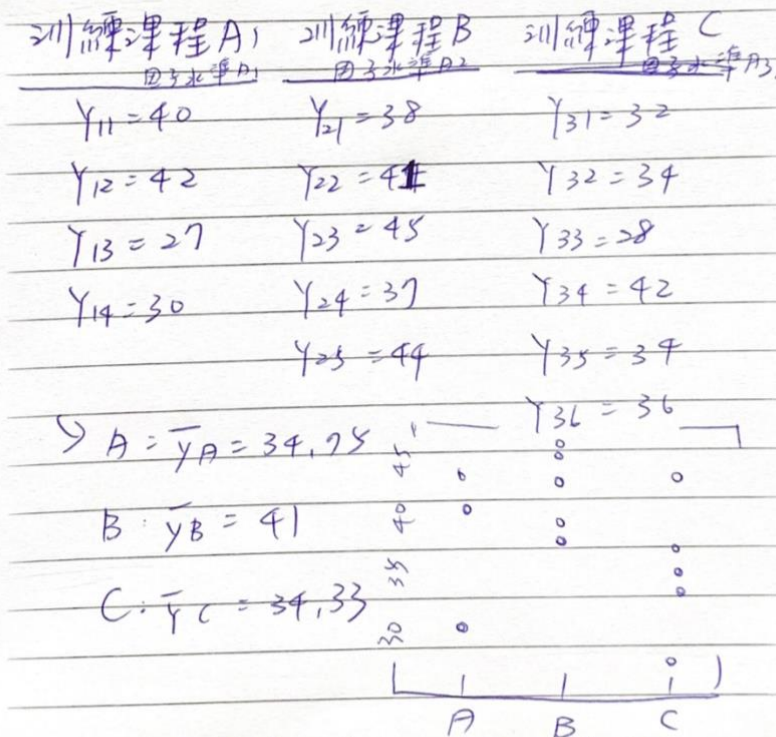 訓練課程A1 訓練課程B 訓練課程 C
因子水準A1 因子水準A2 因子水準A3
Y11=40 Y21=38 Y31=32
Y12=42 Y22=41 Y32=34
Y13=27 Y23=45 Y33=28
Y14=30 Y24=37 Y34=42
Y25=44 Y35=34
Y36=36
A=ȳA=34.75
B:ȳB=41
C:ȳC=34.33
45
40
35
30
A B C